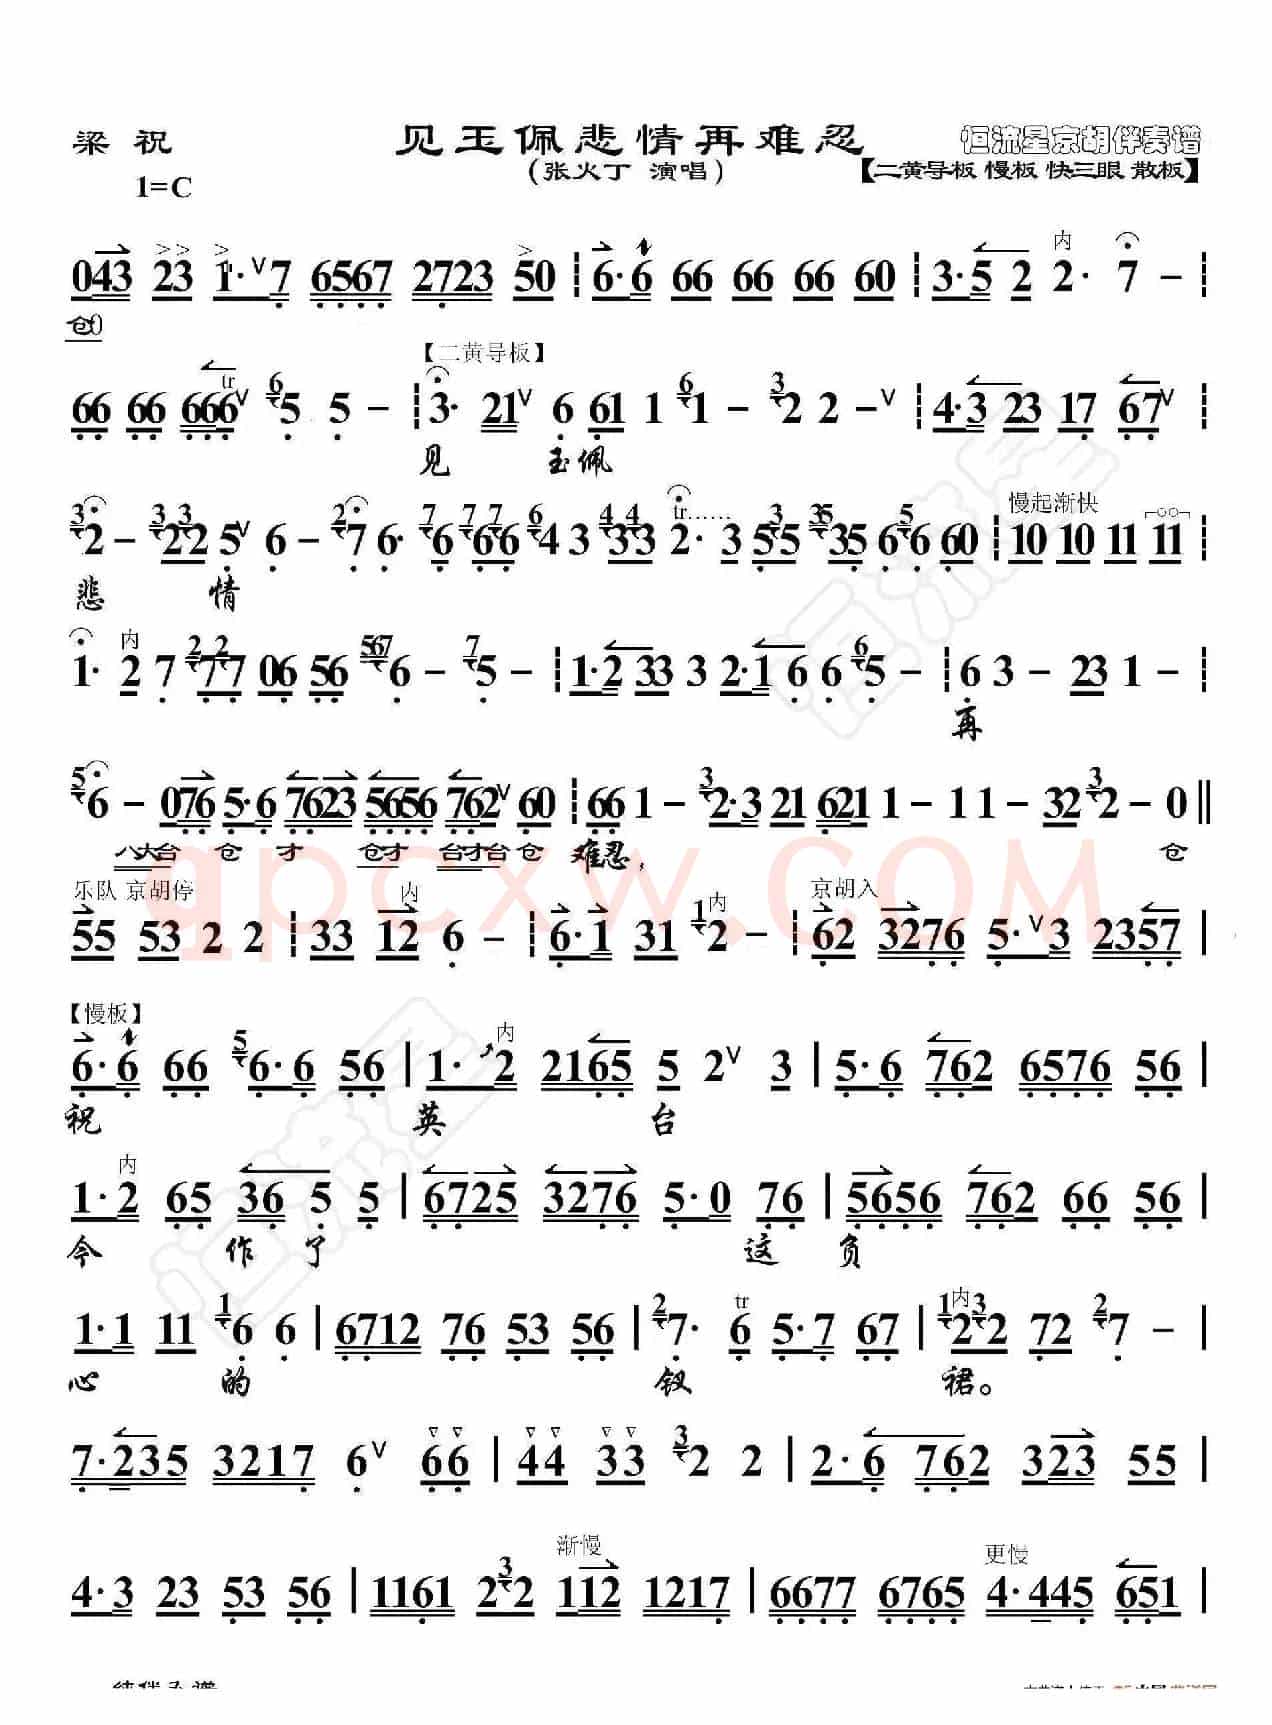 梁 祝 见玉佩悲情再难忍 恒流星京胡伴奏谱
1=C (张火丁 演唱) 【二黄导板 慢板 快三眼 散板】
内
043 23 1·∨7 6567 2723 50 ┆ 6·6 66 66 66 60 ┆ 3·5 2 2· 7 - ┆
仓0
【二黄导板】
66 66 666∨ 5 5 - ┆ 3· 21∨ 6 61 1 1 - 2 2 -∨ ┆ 4·3 23 17 67∨ ┆
见 玉佩
慢起渐快
2 - 22 5∨ 6 - 7 6· 6 66 4 3 33 2· 3 55 35 6 6 60 ┆ 10 10 11 11 ┆
悲 情
内
1· 2 7 77 06 56 6 - 5 - ┆ 1·2 33 3 2·1 6 6 5 - ┆ 6 3 - 23 1 - ┆
再
6 - 076 5·6 7623 5656 762∨ 60 ┆ 66 1 - 2·3 21 621 1 - 1 1 - 32 2 - 0 ‖
八大台 仓 才 仓才 台才台 仓 难忍, 仓
乐队 京胡停 内 内 京胡入
55 53 2 2 ┆ 33 12 6 - ┆ 6·1 31 2 - ┆ 62 3276 5·∨3 2357 |
【慢板】 内
6·6 66 6·6 56 | 1· 2 2165 5 2∨ 3 | 5·6 762 6576 56 |
祝 英 台
内
1·2 65 36 5 5 | 6725 3276 5·0 76 | 5656 762 66 56 |
今 作 了 这 负
tr 内
1·1 11 6 6 | 6712 76 53 56 | 7· 6 5·7 67 | 22 72 7 - |
心 的 钗 裙。
7·235 3217 6∨ 66 | 44 33 2 2 | 2·6 762 323 55 |
渐慢 更慢
4·3 23 53 56 | 1161 22 112 1217 | 6677 6765 4·445 651 |
qpcxw.com
恒流星
恒流星